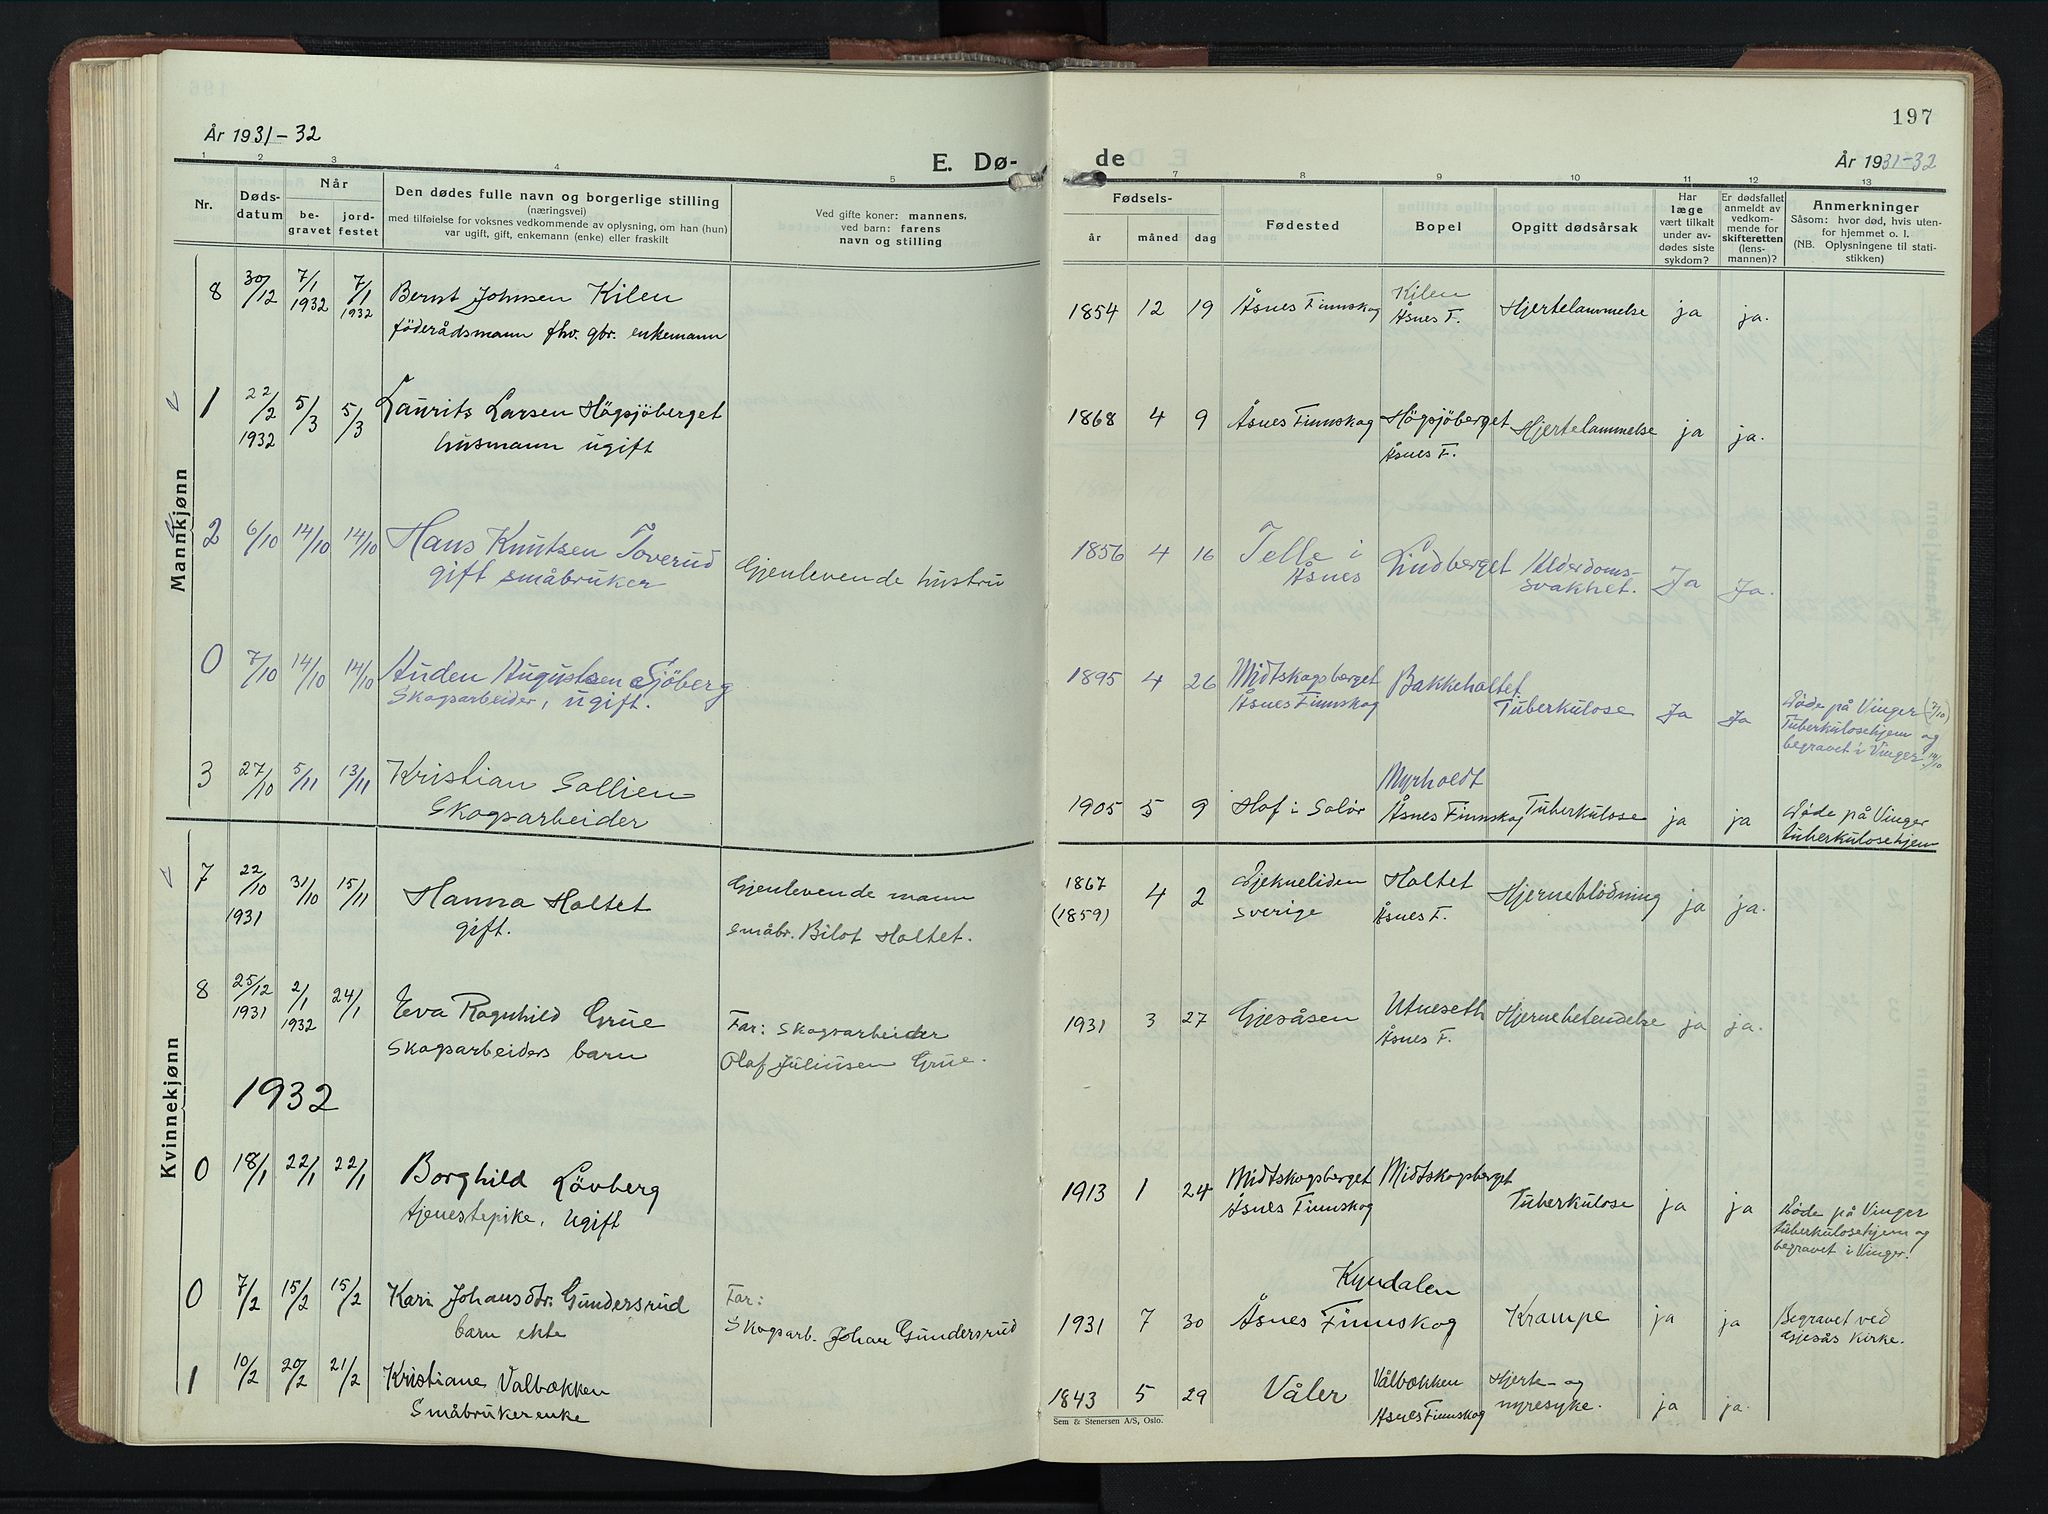 År 1931-32
E. Dø-
1 2 3 4 5
Nr.
Døds-
datum
Når
be-
gravet
jord-
festet
Den dødes fulle navn og borgerlige stilling
(næringsvei)
med tilføielse for voksnes vedkommende av oplysning, om han (hun)
var ugift, gift, enkemann (enke) eller fraskilt
Ved gifte koner: mannens,
ved barn: farens
navn og stilling
Mannkjønn
8 30/12 7/1 1932 7/1 1932 Bernt Johnsen Kilen
föderådsmann fhv. gbr. enkemann
1 22/2 1932 5/3 5/3 Laurits Larsen Högsjöberget
husmann ugift
2 6/10 14/10 14/10 Hans Knutsen Toverud
gift småbruker
Gjenlevende hustru
0 7/10 14/10 14/10 Auden Augustsen Sjöberg
Skogsarbeider, ugift.
3 27/10 5/11 13/11 Kristian Sollien
Skogsarbeider
Kvinnekjønn
7 22/10 1931 31/10 15/11 Hanna Holtet
gift.
Gjenlevende mann
småbr. Bilot Holtet.
8 25/12 1931 2/1 1932 24/1 Eva Ragnhild Grue
Skogsarbeiders barn
Far: Skogsarbeider
Olaf Juliusen Grue.
1932
0 18/1 22/1 22/1 Borghild Lövberg
tjenestepike, ugift
0 7/2 15/2 15/2 Kari Johansdtr. Gundersrud
barn ekte
Far:
Skogsarb. Johan Gundersrud
1 10/2 20/2 21/2 Kristiane Valbækken
Småbrukerenke
197
de
År 1931-32
7 8 9 10 11 12 13
Fødsels-
år måned dag
Fødested
Bopel
Opgitt dødsårsak
Har
læge
vært tilkalt
under av-
dødes siste
sykdom?
Er dødsfallet
anmeldt av
vedkom-
mende for
skifteretten
(lens-
mannen)?
Anmerkninger
Såsom: hvor død, hvis uten-
for hjemmet o. l.
(NB. Oplysningene til stati-
stikken)
Mannkjønn
1854 12 19 Åsnes Finnskog Kilen
Åsnes F. Hjertelammelse ja ja.
1868 4 9 Åsnes Finnskog Högsjöberget
Åsnes F. Hjertelammelse ja ja.
1856 4 16 Telle i
Åsnes Lindberget Alderdoms-
svakhet. Ja Ja.
1895 4 26 Midtskogsberget
Åsnes Finnskog Bakkeholtet
Tuberkulose Ja Ja Döde på Vinger (7/10)
Tuberkulosehjem og
begravet i Vinger. 14/10
1905 5 9 Hof i Solør Myrholdt
Åsnes Finnskog Tuberkulose ja ja Döde på Vinger
tuberkulosehjem
1867
(1859) 4 2 Sverige Holtet
Åsnes F. Hjerneblödning ja ja.
1931 3 27 Gjesåsen Utneseth
Åsnes F. Hjernebetendelse ja ja.
1913 1 24 Midtskogsberget
Åsnes Finnskog Midtskogsberget
Tuberkulose ja ja Döde på Vinger
tuberkulosehjem og
begravet i Vinger!
Kyndalen
1931 7 30 Åsnes Finnskog Krampe ja ja Begravet ved
Gjesås kirke.
1843 5 29 Våler Vålbækken
Åsnes Finnskog Hjerte- og
nyresyke. ja ja.
Sem & Stenersen A/S, Oslo.